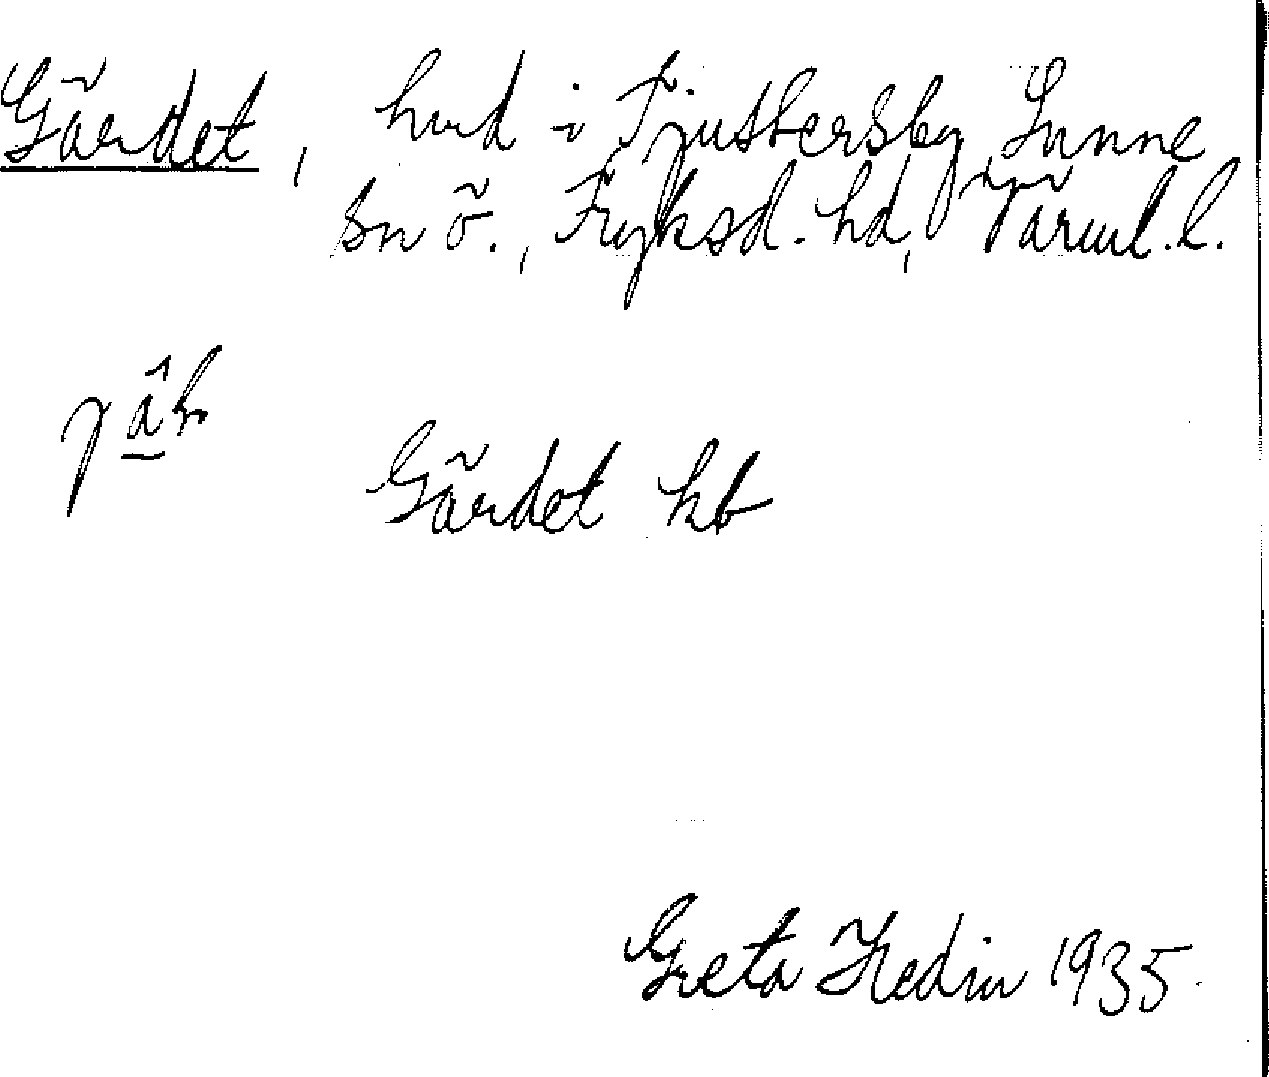 Gärdet, hmd i Tjusbersby, Sunne
sn ö., Fryksd. hd, Värml. l.
Gärdet kb
Greta Hedin 1935.